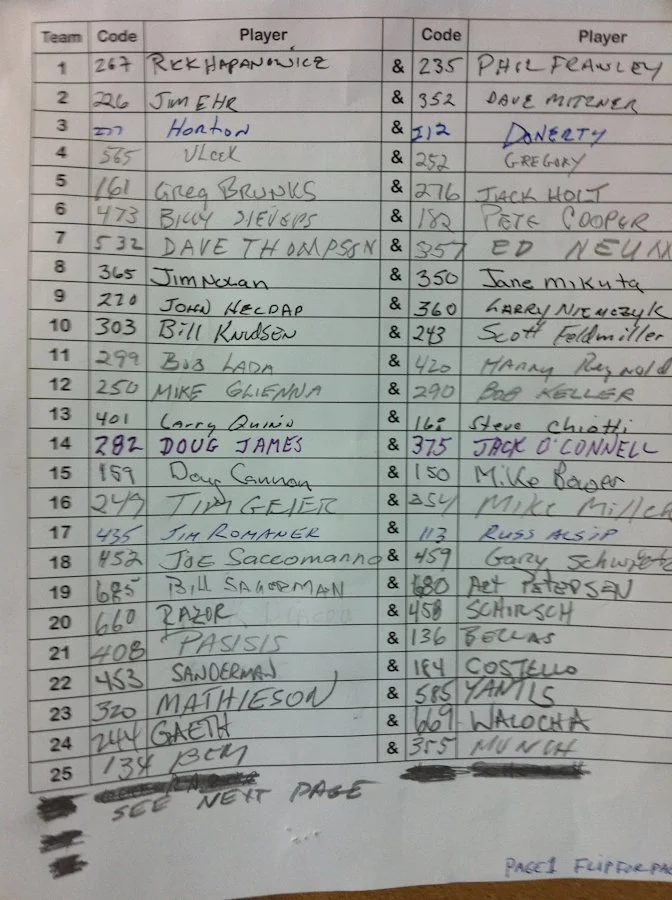 Team Code Player & Code Player
1 267 RICK HAPANOWICZ & 235 PHIL FRAWLEY
2 226 JIM EHR & 352 DAVE MITZNER
3 277 HORTON & 212 DOHERTY
4 565 VLCEK & 252 GREGORY
5 161 Greg BRUNKS & 276 JACK HOLT
6 473 BILLY SIEVERS & 182 PETE COOPER
7 532 DAVE THOMPSON & 357 ED NEUM
8 365 Jim Nolan & 350 Jane Mikuta
9 220 JOHN HELDAP & 360 LARRY NIEMCZYK
10 303 Bill KNUDSEN & 243 Scott Feldmiller
11 299 BOB LADA & 420 HARRY Reynold
12 250 MIKE GLIENNA & 290 BOB KELLER
13 401 Larry Quinn & 168 Steve Chiotti
14 282 DOUG JAMES & 375 JACK O'CONNELL
15 159 Doug Cannon & 150 Mike Bower
16 249 TIM GEIER & 354 Mike Miller
17 435 JIM ROMANEK & 113 RUSS ALSIP
18 452 JOE Saccomanno & 459 Gary Schwietz
19 685 Bill SAGERMAN & 680 Art PETERSEN
20 660 RAZOR & 458 SCHIRSCH
21 408 PASISIS & 136 BELLAS
22 453 SANDERMAN & 184 COSTELLO
23 320 MATHIESON & 585 YANTIS
24 244 GAETH & 669 WALOCHA
25 134 BEM & 355 MUNCH
SEE NEXT PAGE
PAGE 1 FLIP FOR PA